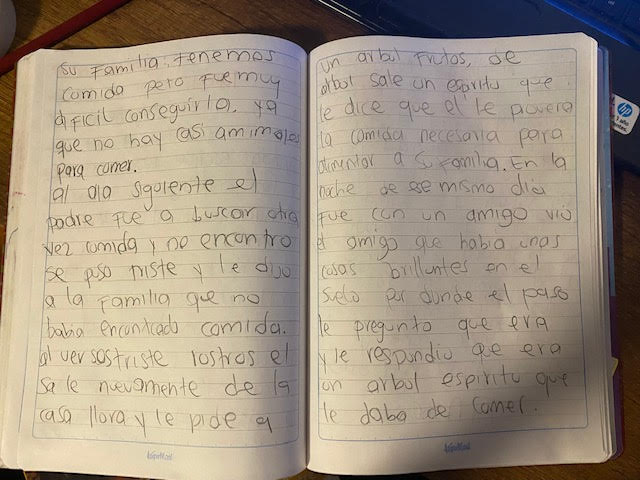 su familia. tenemos
comida pero fue muy
dificil conseguirla. ya
que no hay casi amimales
para comer.
al dia siguiente el
padre fue a buscar otra
vez comida y no encontro
se pso triste y le dijo
a la familia que no
habia encontrado comida.
al ver sostriste rostros el
sale nuevamente de la
casa llora y le pide a
un arbol frutos, de
arbol sale un espiritu que
le dice que el le provera
la comida necesaria para
alimentar a su familia. En la
noche de ese mismo dia
fue con un amigo vio
el amigo que habia unas
cosas brillantes en el
suelo por donde el paso
le pregunto que era
y le respondio que era
un arbol espiritu que
le daba de comer.
hp
1 año